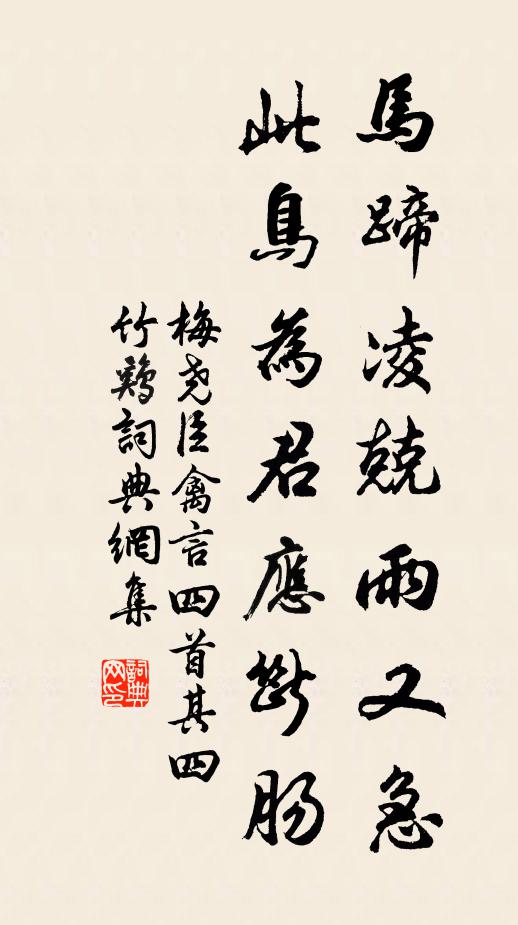 馬蹄凌兢雨又急
此鳥為君應斷腸
梅尧臣禽言四首其四
竹鶏詞典網集
詞典
网印